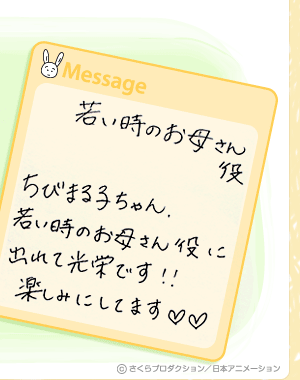 Message
若い時のお母さん
役
ちびまる子ちゃん.
若い時のお母さん役に
出れて光栄です!!
楽しみにしてます♡♡
©さくらプロダクション／日本アニメーション